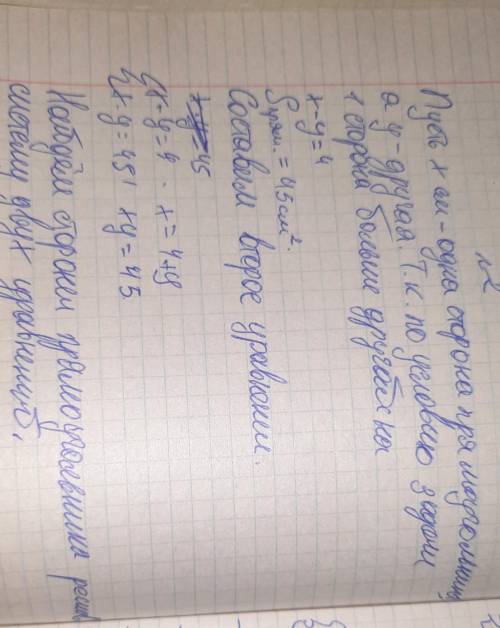 №2
Пусть x см - одна сторона прямоугольника,
а y - другая. Т.к. по условию задачи
1 сторона больше другой на
x-y=4
Sпрям. = 45 см².
Составим второе уравнение.
xy=45
x-y=4 x=4+y
x·y=45 xy=45
Найдём стороны прямоугольника решив
систему двух уравнений.